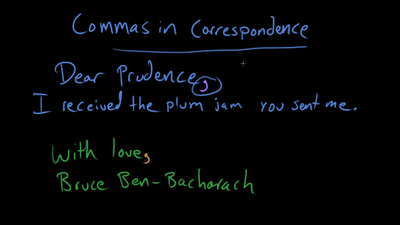 Commas in Correspondence
Dear Prudence,
I received the plum jam you sent me.
With love,
Bruce Ben-Bacharach